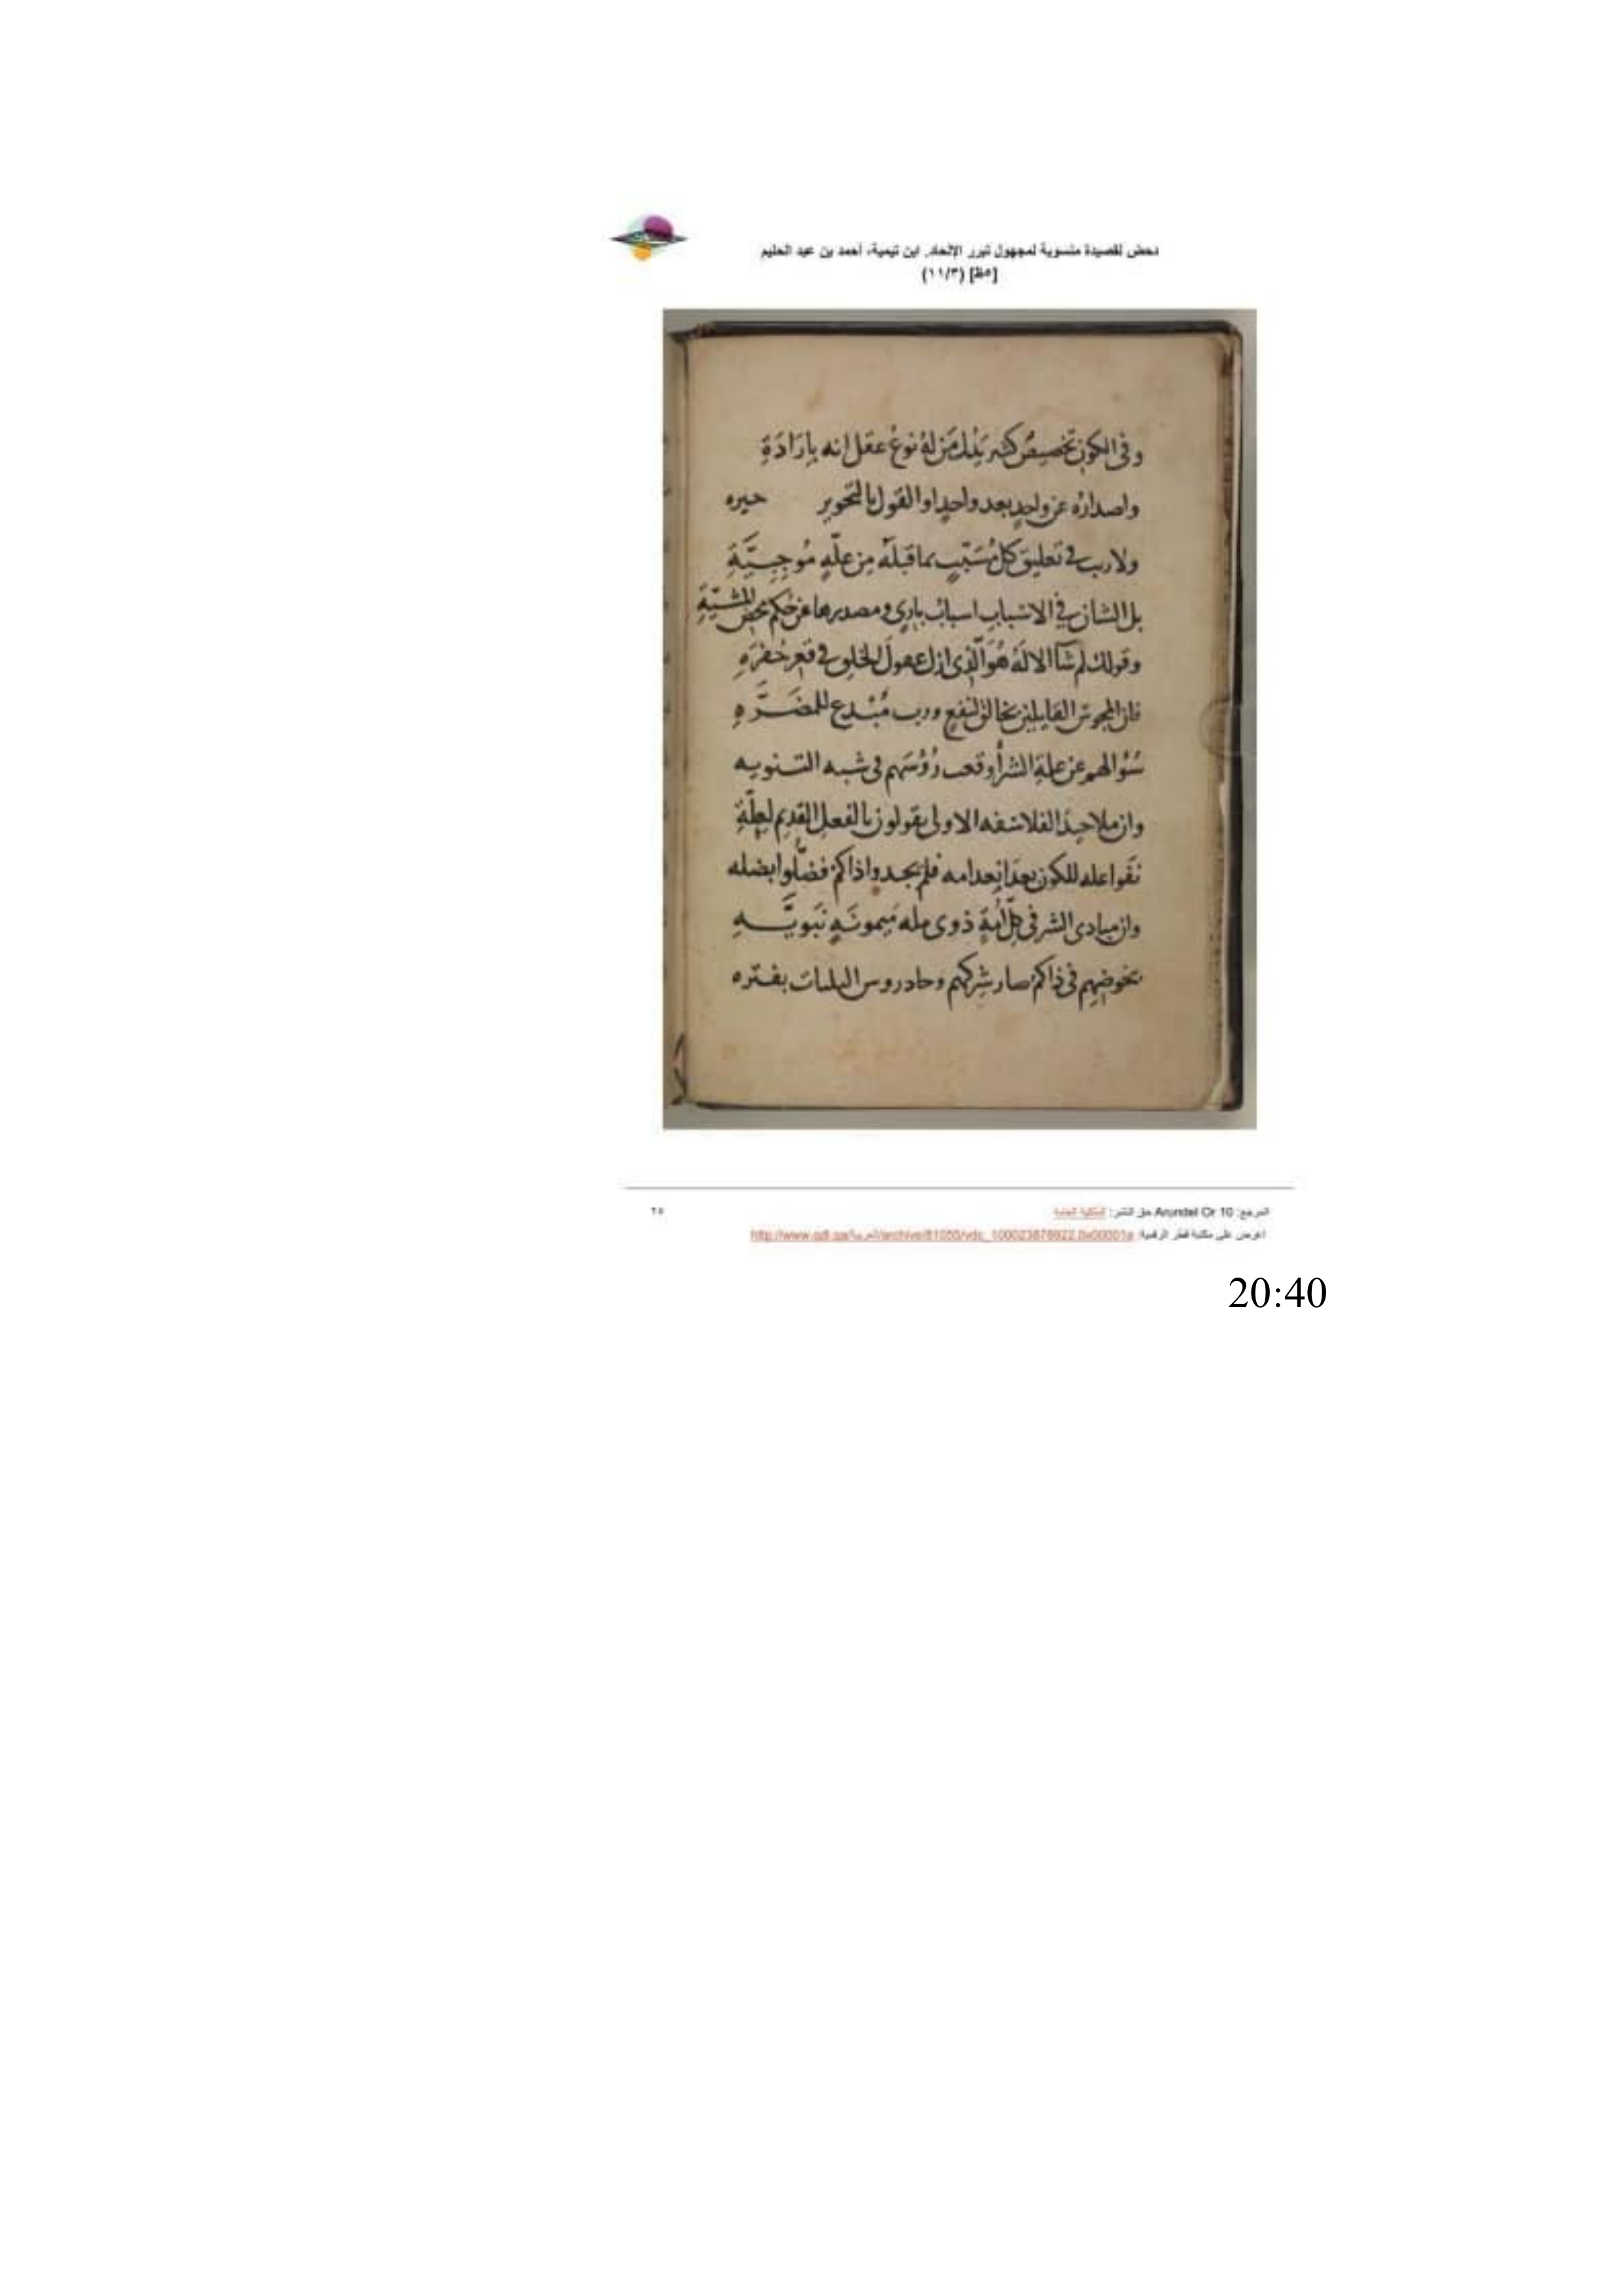 دحض لقصيدة منسوبة لمجهول تبرر الإلحاد. ابن تيمية، أحمد بن عبد الحليم
[٥ظ] (١١/٣)
وفي الكون تخصيص كثير يدل من له نوع عقل انه بارادة
واصداره عن واحد بعد واحد او القول بالتجوير حيره
ولا ريب في تعليق كل مسبب بما قبله من علة موجبية
بل الشان في الاسباب اسباب باري ومصدرها عن حكم محض المشية
وقولك لم شا الاله هو الذي ازل عقول الخلق في قعر حفرة
فان المجوس القايلين بخالق لنفع ورب مبدع للمضرة
سؤالهم عن علة الشر اوقعت رؤسهم في شبه الثنويه
وان ملاحيد الفلاسفه الاولى يقولون بالفعل القديم لعلة
نفوا عله للكون بعد انعدامه فلم يجدوا ذاكم فضلوا بضله
وان مبادي الشر في كل امة ذوي مله ميمونة نبوية
بخوضهم في ذاكم صار شركهم وجاد روس البينات بفتره
المرجع: Arundel Or 10 حق النشر: الملكية العامة
٢٥
اعرض على مكتبة قطر الرقمية:
20:40